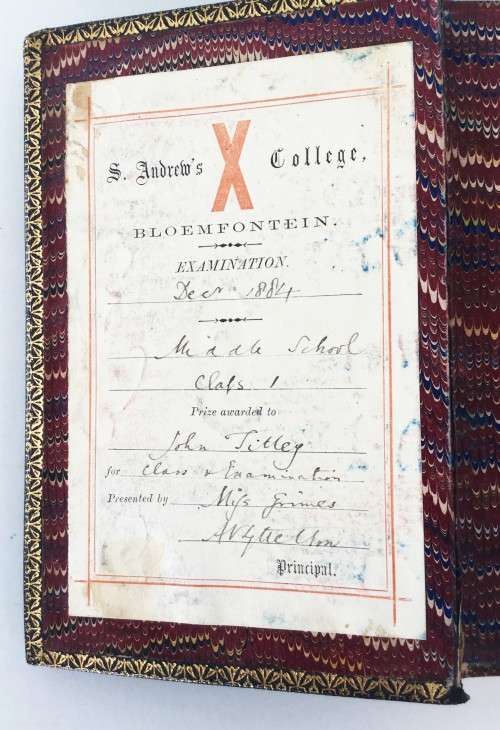 S. Andrew's X College,
BLOEMFONTEIN.
EXAMINATION.
Decr. 1884
Middle School
Clafs 1
Prize awarded to
John Tilley
for Class & Examination
Presented by Mifs Grimes
Principal.